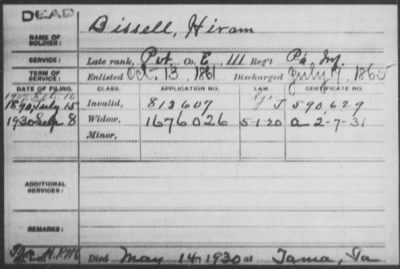 DEAD
NAME OF SOLDIER: Bissell, Hiram
SERVICE: Late rank, Pvt. Co. E, 111 Reg't Pa. Inf.
TERM OF SERVICE: Enlisted Oct. 13, 1861 Discharged July 19, 1865
DATE OF FILING. CLASS. APPLICATION NO. LAW CERTIFICATE NO.
1890 July 15 Invalid, 813607 J 590629
1930 Sep 8 Widow, 1676026 5-1-20 a 2-7-31
Minor,
ADDITIONAL SERVICES:
REMARKS:
Died May 14 1930 at Tama, Ia